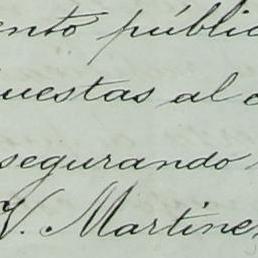 ento públic
uestas al
segurando
V. Martine